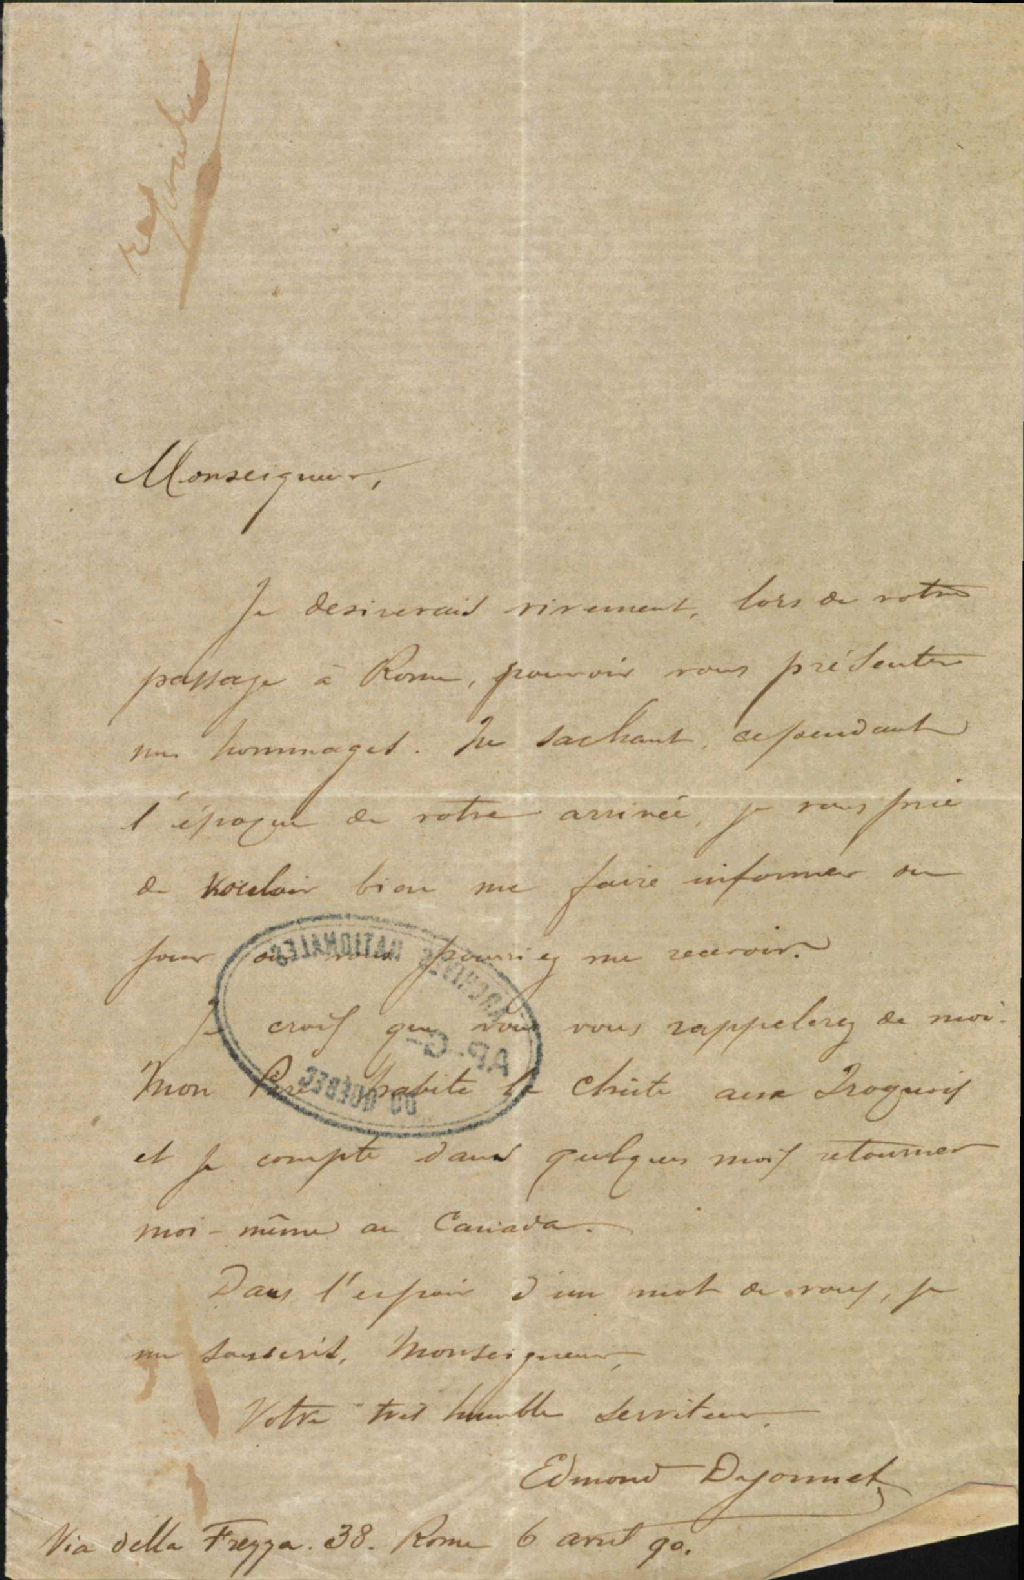 répondre
Monseigneur,
Je desirerais vivement, lors de votre
passage à Rome, pouvoir vous présenter
mes hommages. Ne sachant, cependant
l'époque de votre arrivée, je vous prie
de vouloir bien me faire informer du
jour où vous pourriez me recevoir.
ARCHIVES NATIONALES
Je crois que vous vous rappelerez de moi.
AP-G-
Mon Père habite la Chûte aux Iroquois
DU QUÉBEC
et je compte dans quelques mois retourner
moi-même au Canada.
Dans l'espoir d'un mot de vous, je
me souscris, Monseigneur,
Votre très humble serviteur.
Edmond Dyonnet,
Via della Frezza. 38. Rome 6 avril 90.